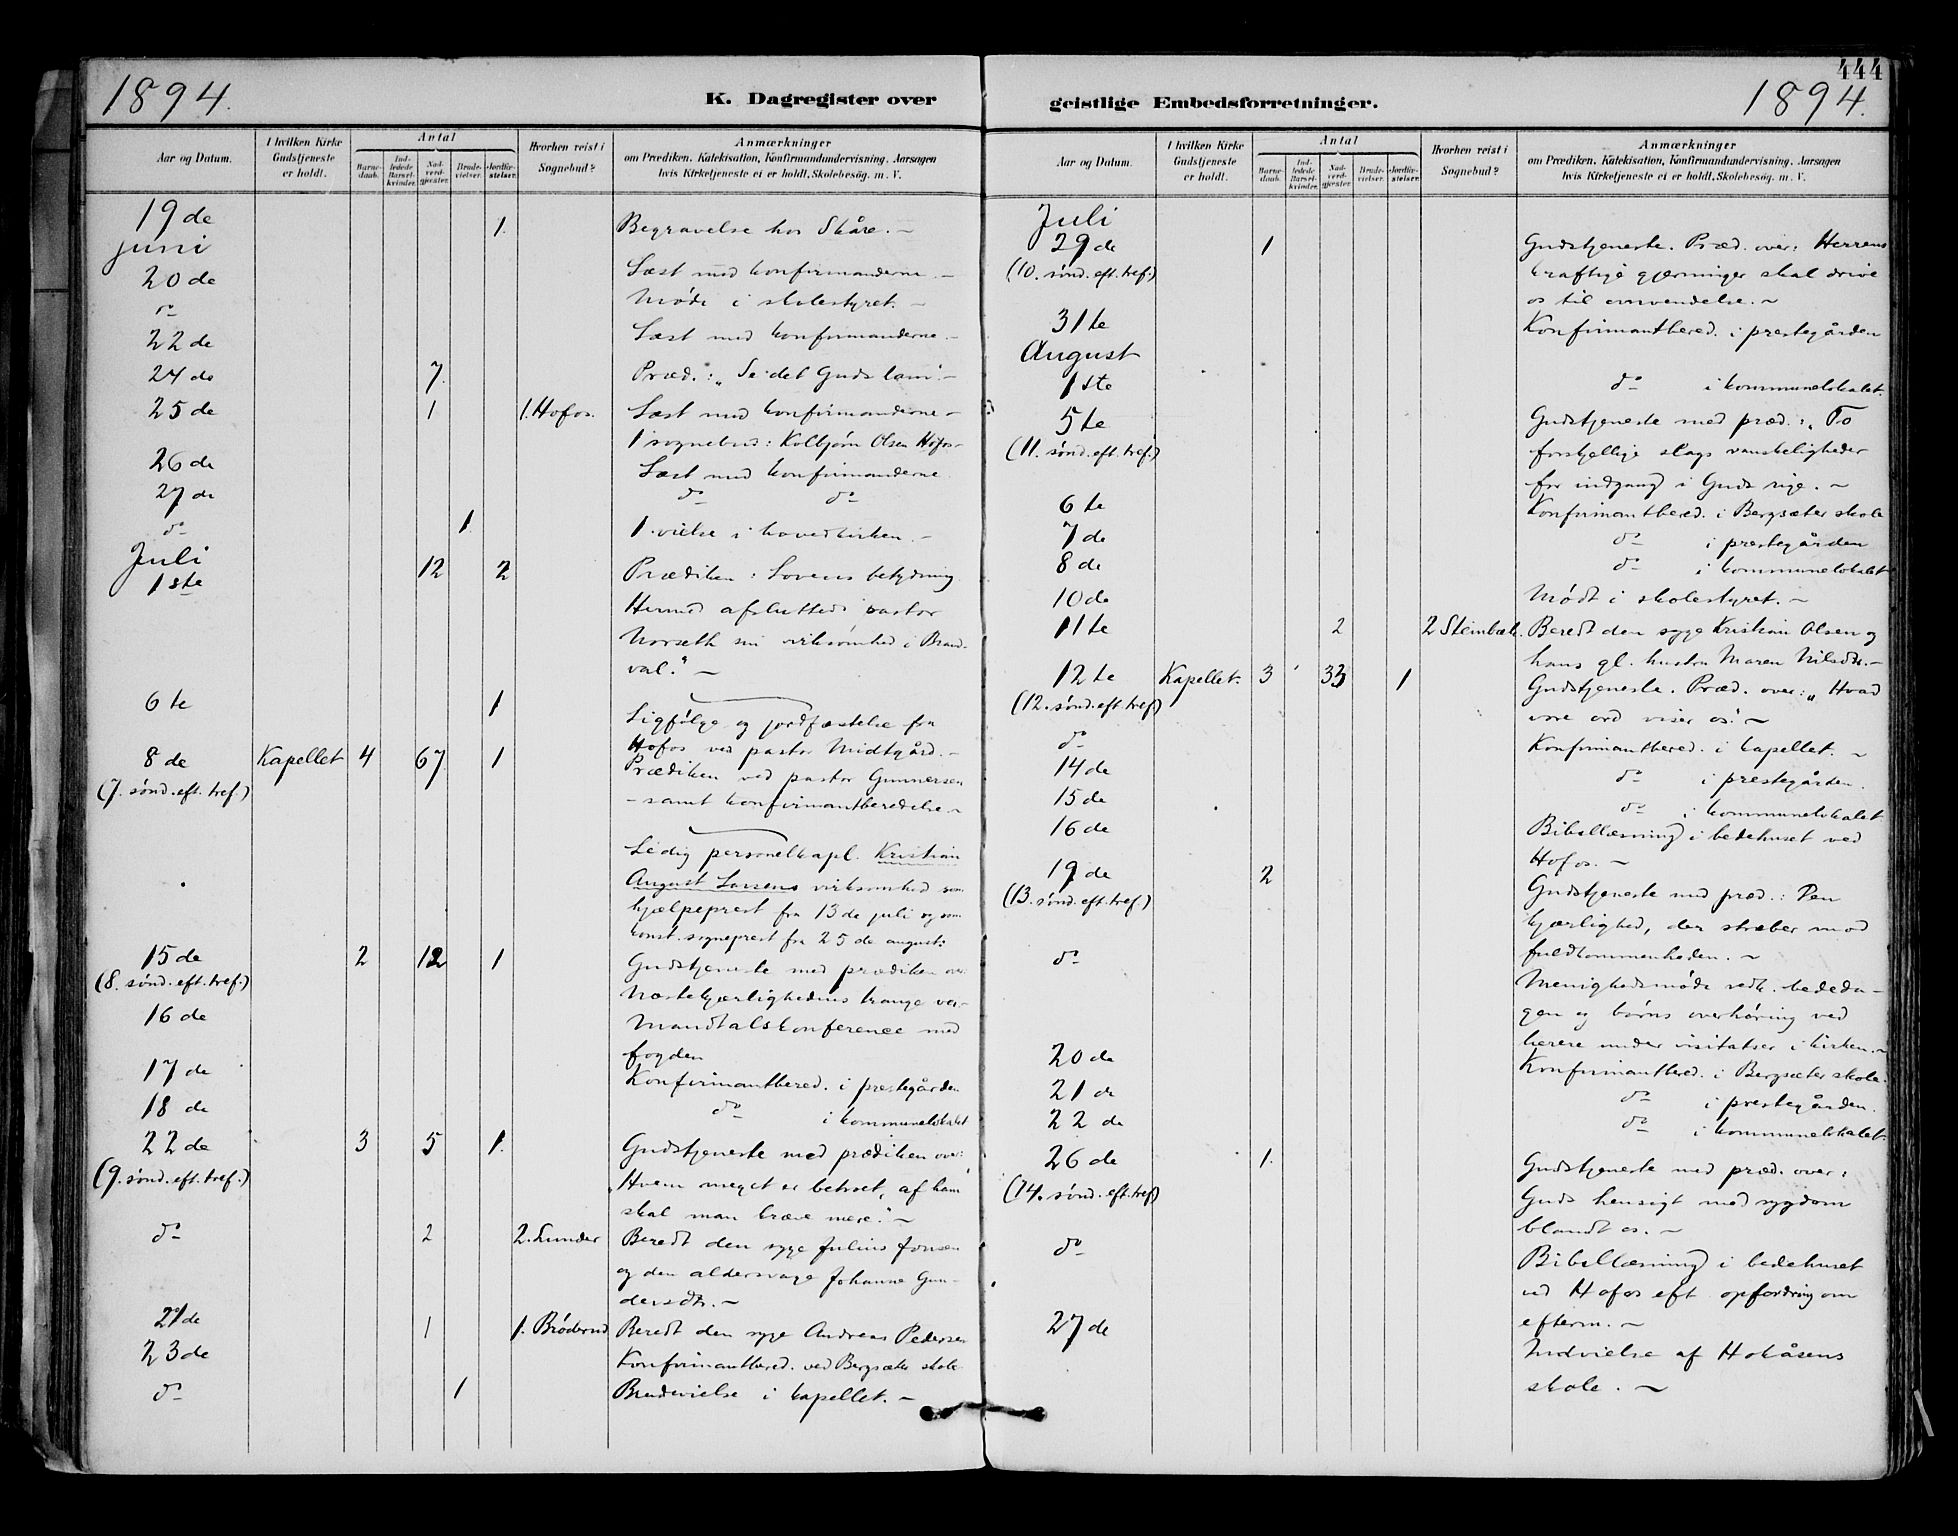 1894.
K. Dagregister over
Aar og Datum.
I hvilken Kirke Gudstjeneste er holdt.
Antal
Barne-daab.
Ind-ledede Barsel-kvinder.
Nad-verd-gjester.
Brude-vielser.
Jordfæ-stelser.
Hvorhen reist i Sognebud?
Anmærkninger
om Prædiken, Katekisation, Konfirmandundervisning, Aarsagen
hvis Kirketjeneste ei er holdt, Skolebesøg. m. V.
19de 1. Begravelse hos Skåre. –
juni
20de Læst med konfirmanderne. –
do Møde i skolestyret. –
22de Læst med konfirmanderne. –
24de 7. Præd.: „Se det Guds lam". –
25de 1 1. Hofos. Læst med konfirmanderne –
1 sognebud: Kolbjørn Olsen Hofos –
26de Læst med konfirmanderne.
27de do do
do 1. 1. vielse i hovedkirken. –
Juli
1ste 12 2 Prædiken: Lovens betydning.
Hermed afsluttede pastor
Norseth sin virksomhed i Brand-
val." –
6te 1 Ligfølge og jordfæstelse fra
Hofos ved pastor Midtgård. –
8de Kapellet 4 67. 1 Prædiken ved pastor Gunnersen
(7. sønd. eft. tref.) – samt konfirmantberedelse –
Ledig personelkapl. Kristian
August Larsens virksomhed som
hjælpeprest fra 13de juli og som
konst. sogneprest fra 25de august:
15de 2 12 1 Gudstjeneste med prædiken over
(8. sønd. eft. tref.) Næstekjærlighedens trange vei –
16de Mandtalskonference med
fogden
17de Konfirmantbered. i prestegården
18de do i kommunelokalet
22de 3 5 1. Gudstjeneste med prædiken over:
(9. sønd. eft. tref.) „Hvem meget er betroet, af ham
skal man kræve mere." –
do 2 2. Lunder Beredt den syge Julius Jonsen
og den aldersvage Johanne Gun-
dersdtr. –
21de 1 1. Brøderud Beredt den syge Andreas Pedersen
23de Konfirmantbered. ved Bergsæter skole
do 1 Brudevielse i kapellet. –
444
1894.
geistlige Embedsforretninger.
Aar og Datum.
I hvilken Kirke Gudstjeneste er holdt.
Antal
Barne-daab.
Ind-ledede Barsel-kvinder.
Nad-verd-gjester.
Brude-vielser.
Jordfæ-stelser.
Hvorhen reist i Sognebud?
Anmærkninger
om Prædiken, Katekisation, Konfirmandundervisning, Aarsagen
hvis Kirketjeneste ei er holdt, Skolebesøg. m. V.
Juli
29de 1 Gudstjeneste. Præd. over: Herrens
(10. sønd. eft. tref.) kraftige gjerninger skal drive
os til omvendelse. –
31te Konfirmantbered. i prestegården
August
1ste do i kommunelokalet.
5te Gudstjeneste med præd.: „To
(11. sønd. eft. tref.) forskjellige slags vanskeligheder
for indgang i Guds rige. –
6te Konfirmantbered. i Bergsæter skole
7de do i prestegården
8de do i kommunelokalet
10de Mødt i skolestyret. –
11te 2 2 Steinbæk. Beredt den syge Kristian Olsen og
hans gl. hustru Maren Nilsdtr. –
12te Kapellet. 3 33 1 Gudstjeneste. Præd. over: „Hvad
(12. sønd. eft. tref.) vore ord viser os." –
do Konfirmantbered. i kapellet. –
14de do i prestegården.
15de do i kommunelokalet
16de Bibellæsning i bedehuset ved
Hofos. –
19de 2 Gudstjeneste med præd.: Den
(13. sønd. eft. tref.) kjærlighed, der stræber mod
fuldkommenheden. –
do Menighedsmøde vedk. bededa-
gen og børns overhøring ved
lærere under visitatser i kirken. –
20de Konfirmantbered. i Bergsæter skole.
21de do i prestegården.
22de do i kommunelokalet.
26de 1. Gudstjeneste med præd. over:
(14. sønd. eft. tref) Guds hensigt med sygdom
blandt os. –
do Bibellæsning i bedehuset
ved Hofos eft. opfordring om
efterm. –
27de Indvielse af Hokåsens
skole. –